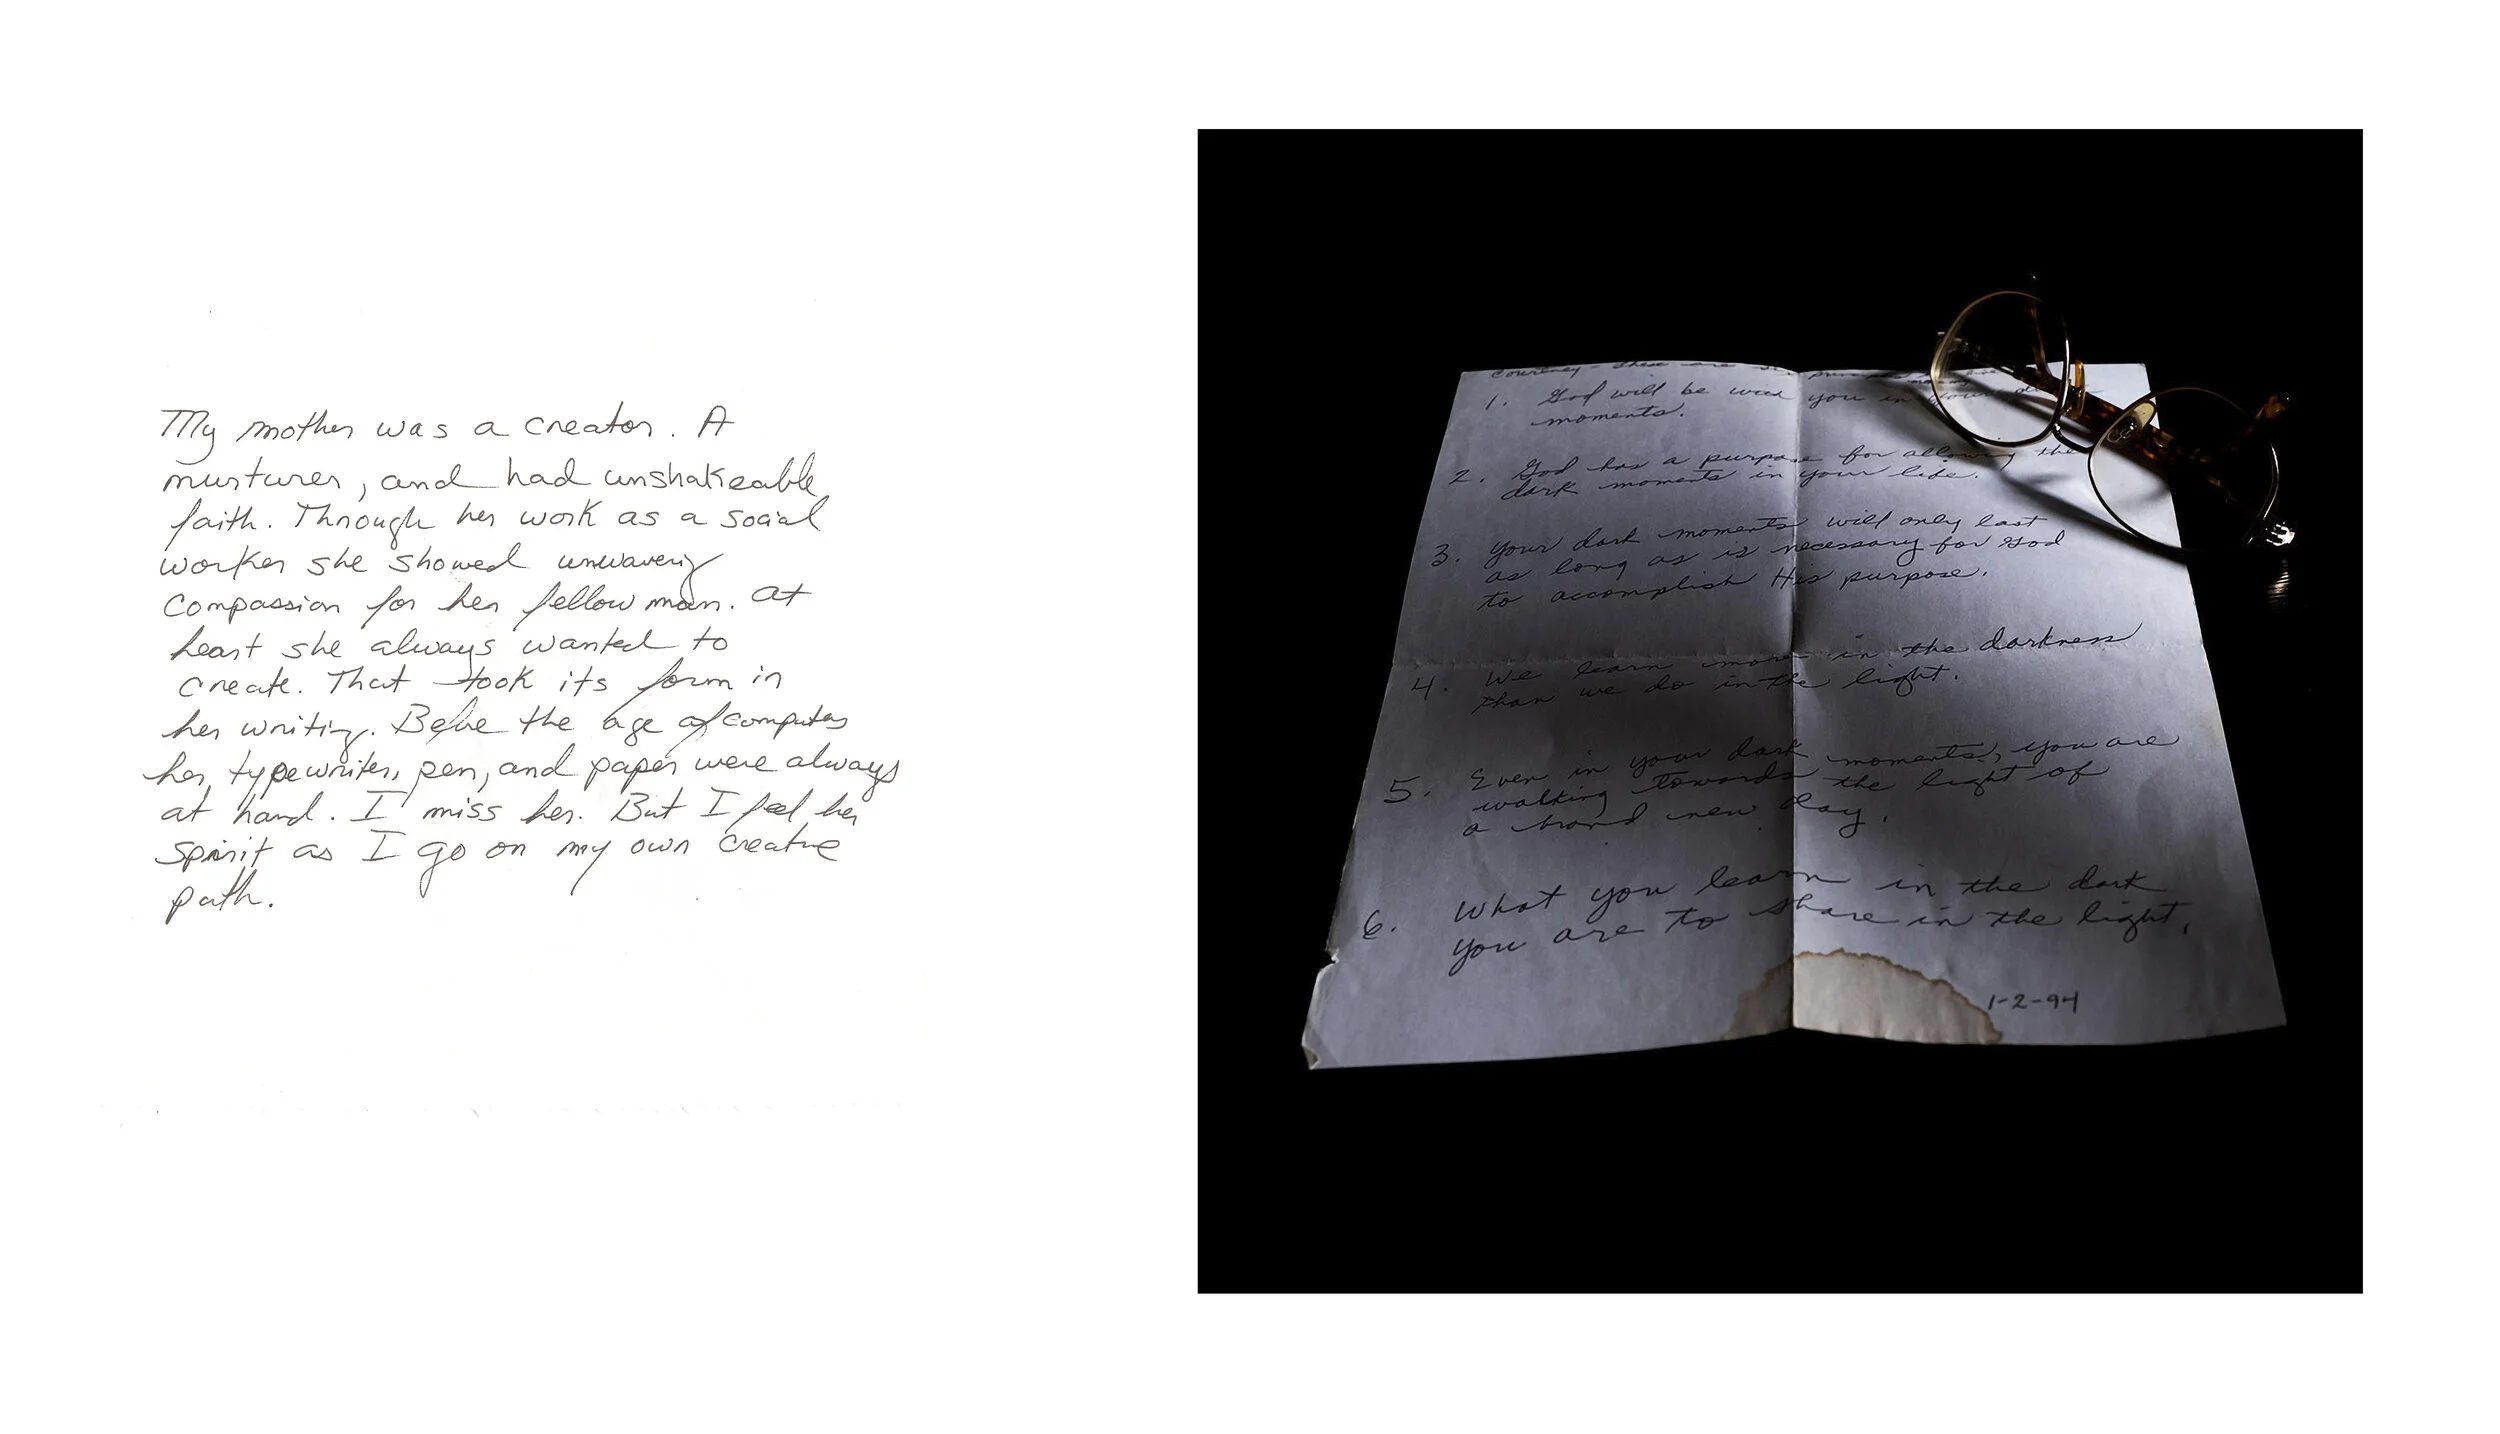 My mother was a creator. A
nurturer, and had unshakeable
faith. Through her work as a social
worker she showed unwavering
compassion for her fellow man. At
heart she always wanted to
create. That took its form in
her writing. Before the age of computers
her typewriter, pen, and paper were always
at hand. I miss her. But I feel her
spirit as I go on my own creative
path.
Courtney - these are six principles
1. God will be with you in your
moments.
2. God has a purpose for allowing the
dark moments in your life.
3. Your dark moments will only last
as long as is necessary for God
to accomplish His purpose.
4. We learn more in the darkness
than we do in the light.
5. Even in your dark moments, you are
walking towards the light of
a brand new day.
6. What you learn in the dark
you are to share in the light.
1-2-94